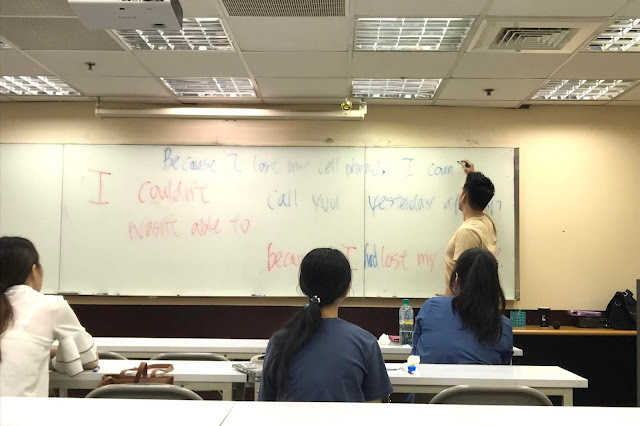 Because I lose my cell phone. I coun
I couldn't call you yesterday
wasn't able to
because I had lost my